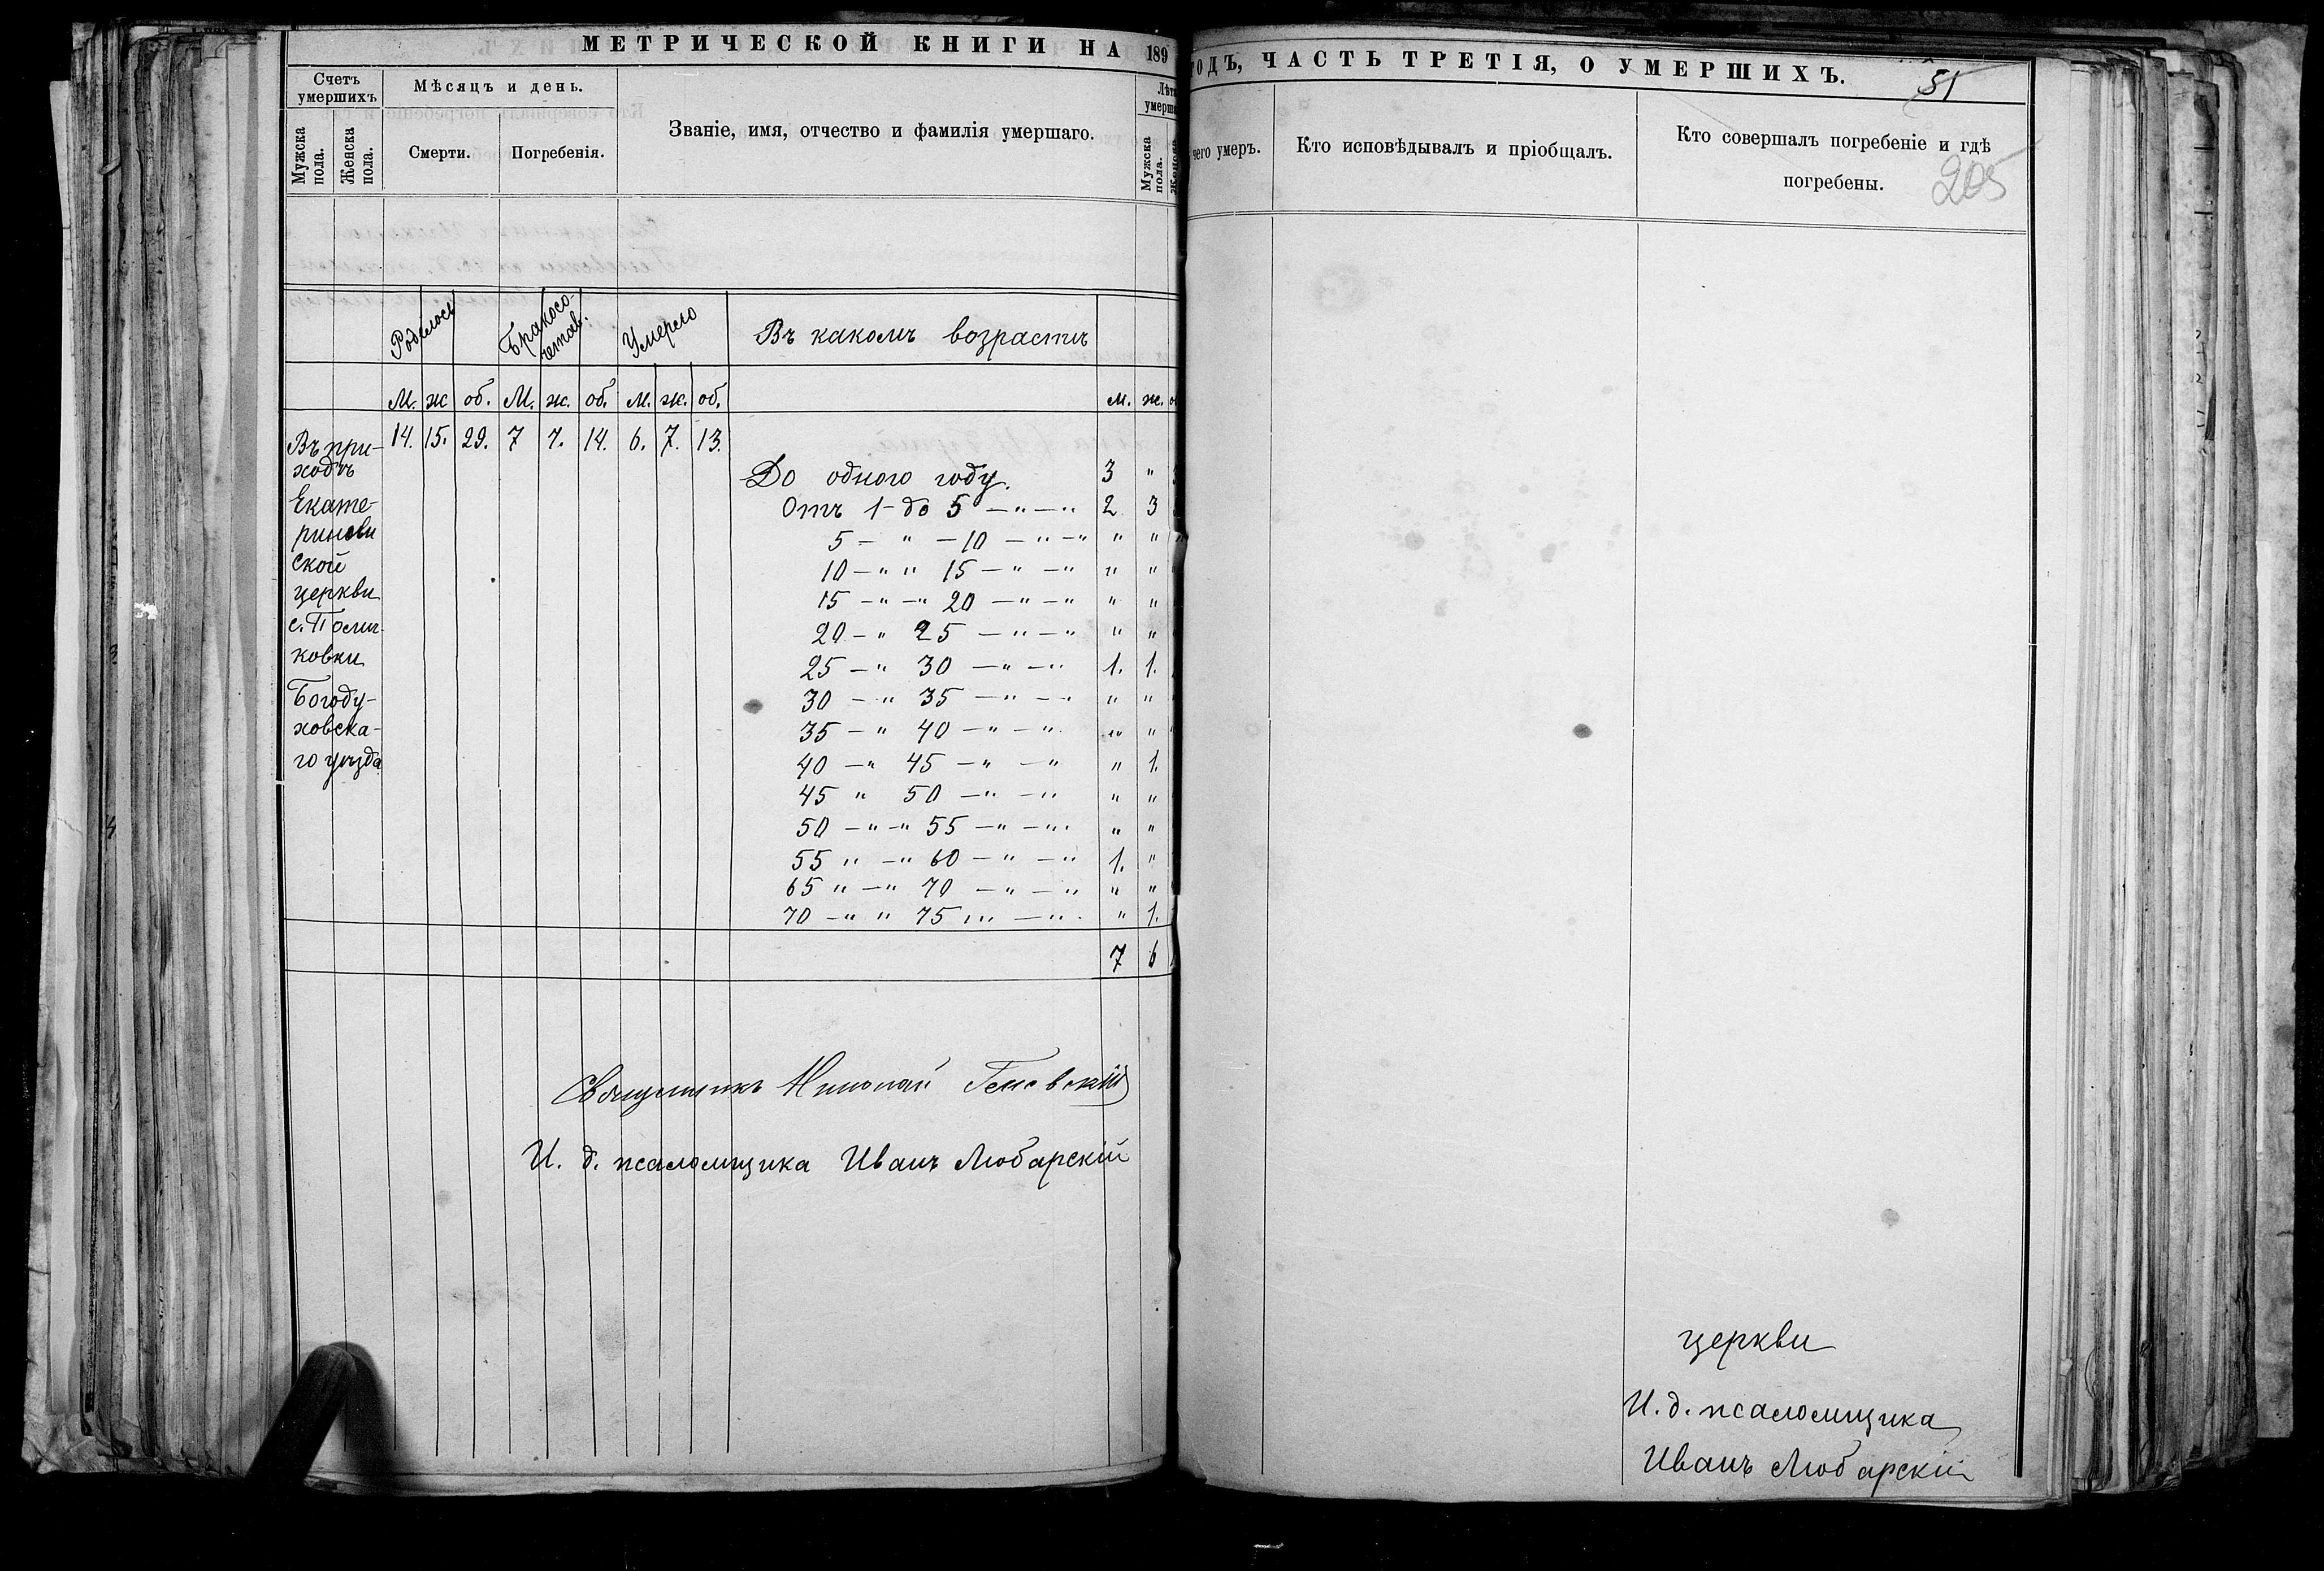 МЕТРИЧЕСКОЙ КНИГИ НА 189
Счетъ умершихъ
Мѣсяцъ и день.
Званіе, имя, отчество и фамилія умершаго.
Лѣта умерша
Мужска пола.
Женска пола.
Смерти.
Погребенія.
Мужска пола.
Женска
Родилось
Бракосочетав.
Умерло
Въ какомъ возрастѣ
М. ж об. М. ж. об. м. ж. об. м. ж. об
Въ при- 14. 15. 29. 7 7. 14. 6. 7. 13.
ходѣ
До одного году. 3 " 3
Екате-
Отъ 1-до 5 —"—" 2 3
ринови
5 — " — 10 —"—" " " "
ской
10 —" " 15 —" —" " "
церкви
15 —" —" 20 —" —" " "
с.
20 —" 25 —" —" " "
ковки
25 —" 30 —" —" 1. 1.
Богоду-
30 —" 35 —" —" " "
ховска-
35 —" 40 —" —" " "
го уѣзда
40 —" 45 —" —" " 1.
45 " 50 —" —" " "
50 —" —" 55 —" —" " "
55 " —" 60 —" —" 1. "
65 " —" 70 —" —" " "
70 —" " 75 "' —" " 1.
7 6
Священникъ Николай
И. д. псаломщика Иванъ Любарскій
ГОДЪ, ЧАСТЬ ТРЕТІЯ, О УМЕРШИХЪ.
51
чего умеръ.
Кто исповѣдывалъ и пріобщалъ.
Кто совершалъ погребеніе и гдѣ
погребены.
205
церкви
И. д. псаломщика
Иванъ Любарскій